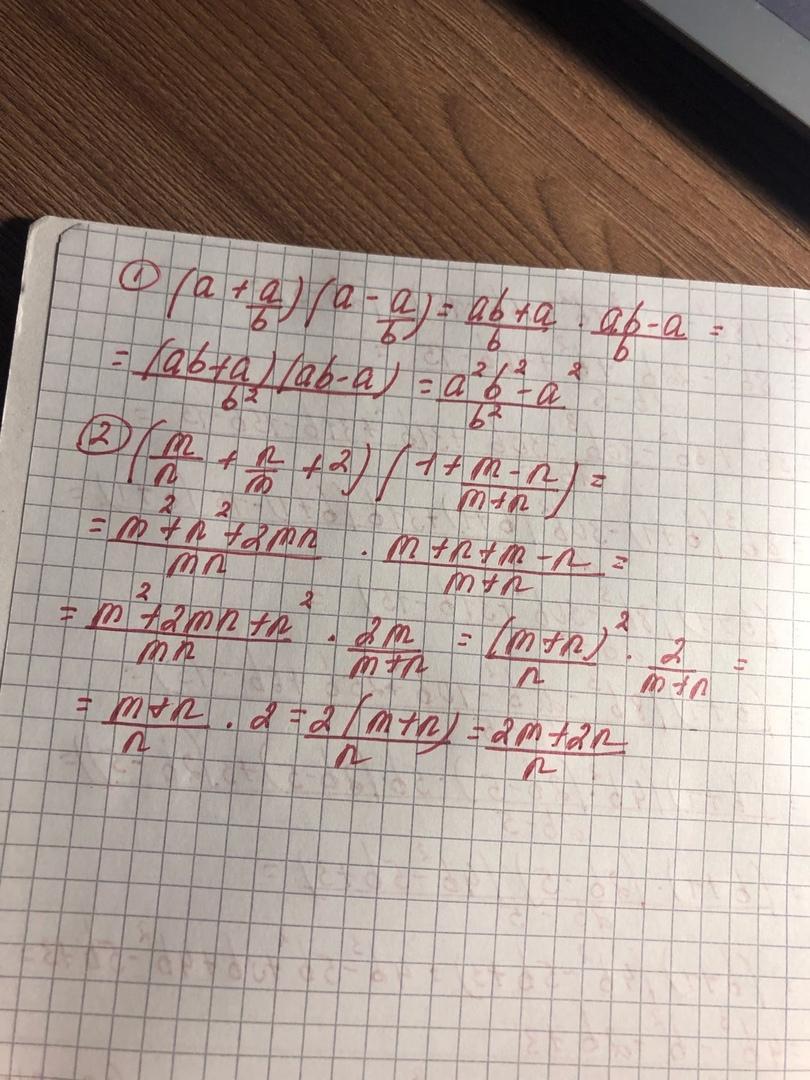 ① (a + a/b)(a - a/b) = ab+a/b · ab-a/b =
= (ab+a)(ab-a)/b² = a²b²-a²/b²
② (m/n + n/m + 2)(1 + m-n/m+n) =
= m²+n²+2mn/mn · m+n+m-n/m+n =
= m²+2mn+n²/mn · 2m/m+n = (m+n)²/n · 2/m+n =
= m+n/n · 2 = 2(m+n)/n = 2m+2n/n